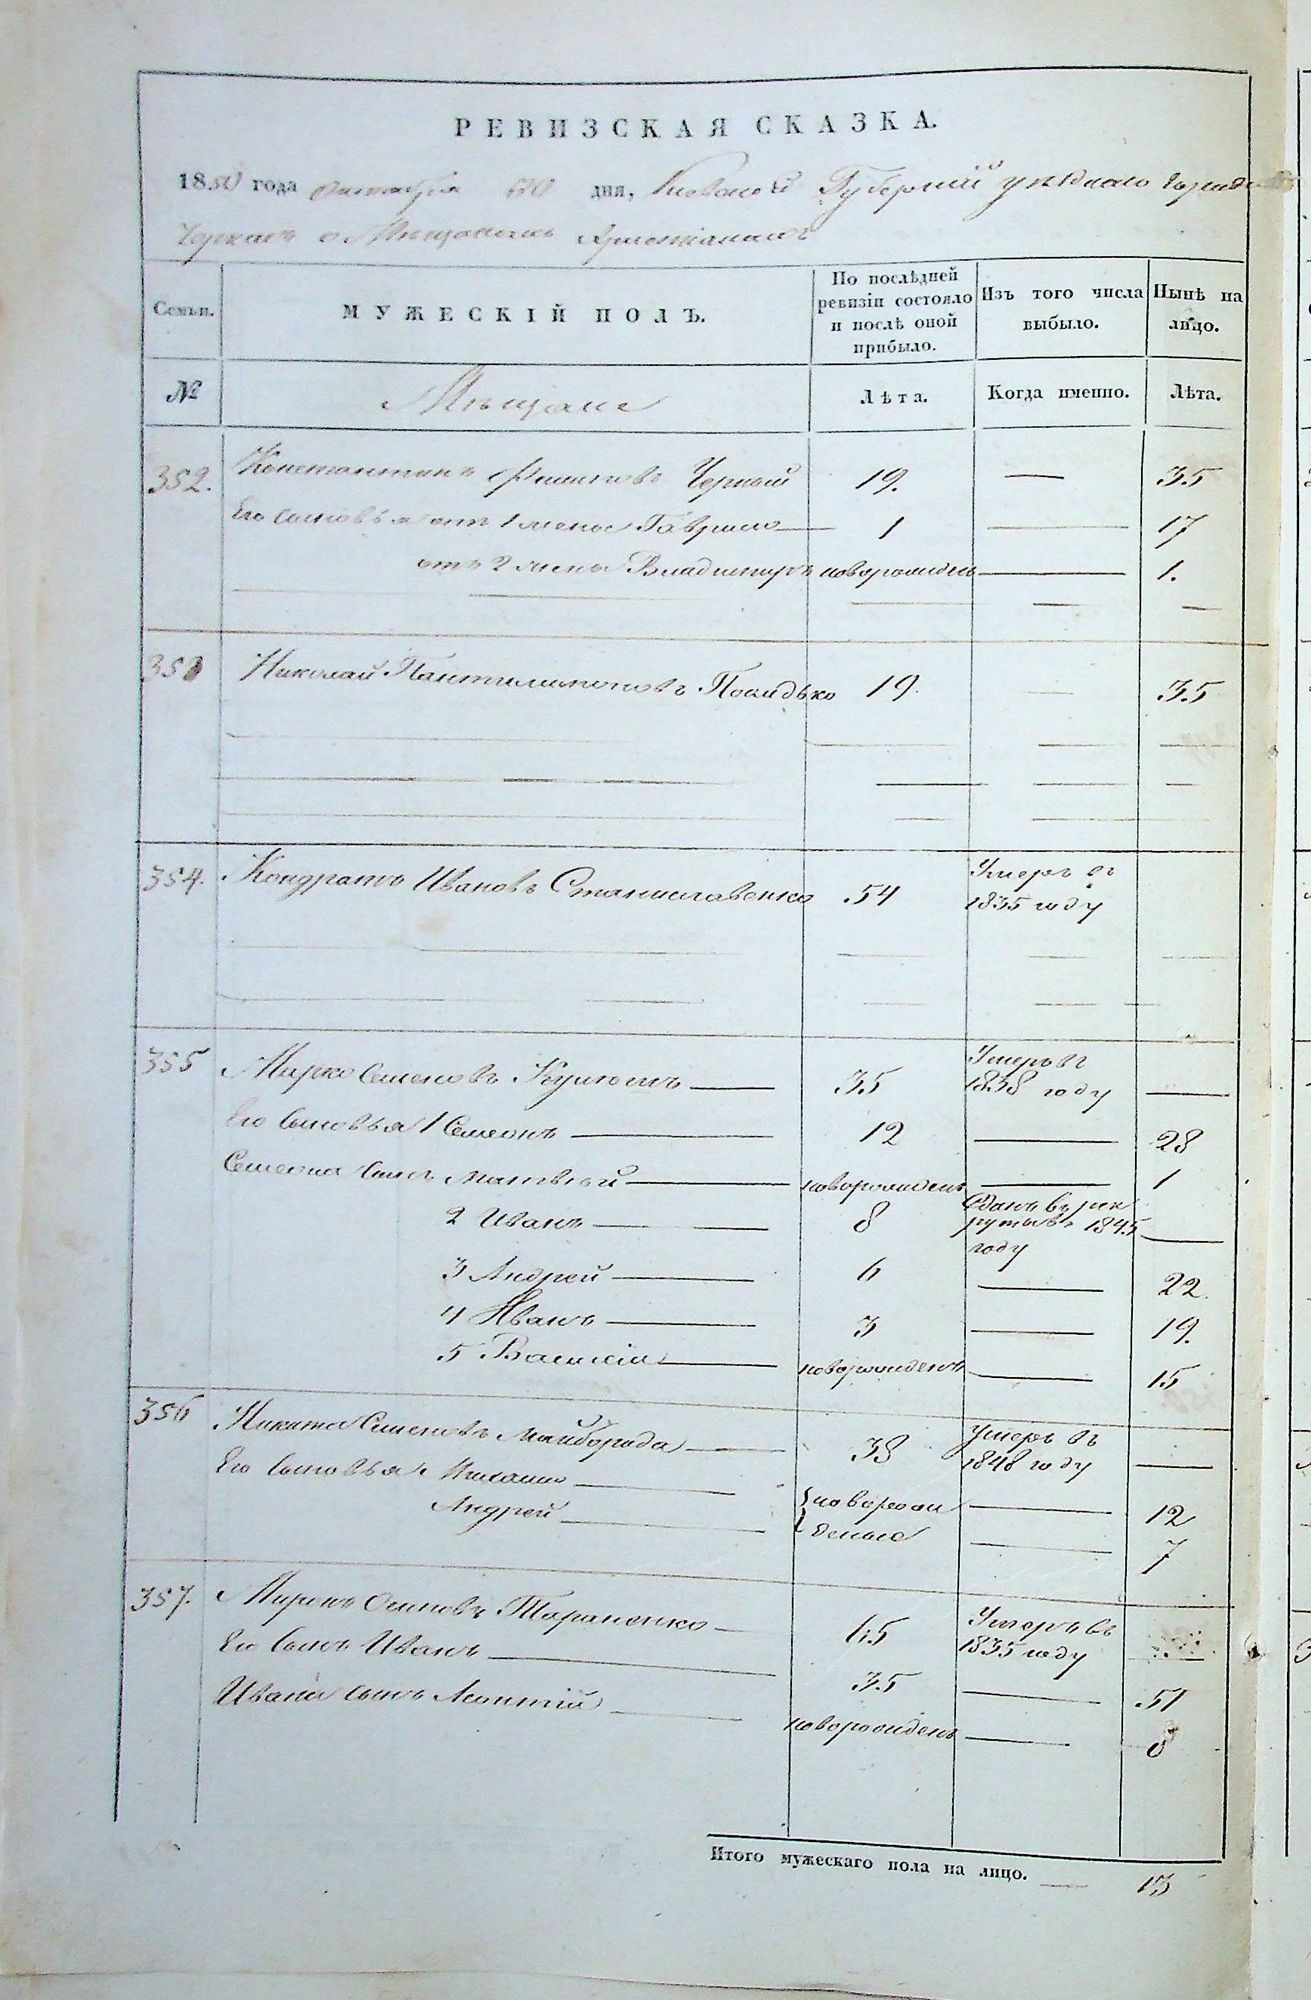 РЕВИЗСКАЯ СКАЗКА.
1850 года октября 30 дня, Киевской Губерніи уѣзднаго города
Черкасъ о Мѣщанахъ Христіанахъ
Семьи. МУЖЕСКІЙ ПОЛЪ. По послѣдней ревизіи состояло и послѣ оной прибыло. Изъ того числа выбыло. Нынѣ на лицо.
№ Мѣщане Лѣта. Когда именно. Лѣта.
352. Константинъ Черный 19. — 35
Его сыновья отъ 1 жены Гаврило — 1 — 17
отъ 2 жены Владимиръ новорожденъ — 1.
353 Николай Пантилимоновъ 19. — 35
354. Кондратъ Ивановъ Станиславенко 54 Умеръ въ 1835 году
355 Мирко Семеновъ — 35 Умеръ въ 1838 году —
Его сыновья 1 Семенъ — 12 — 28
Семена сынъ Матвѣй — новорожденъ — 1
2 Иванъ — 8 Сданъ въ рекруты въ 1845 году —
3 Андрей — 6 — 22.
4 Иванъ — 3 — 19.
5 Василій — новорожденъ — 15
356 Никита Семеновъ Майборода — 38 Умеръ въ 1848 году —
Его сыновья — новорож — 12
Андрей — деные — 7
357. Миронъ Осиповъ Тараненко — 65 Умеръ въ 1835 году —
Его сынъ Иванъ — 35 — 51
Ивана сынъ Леонтій — новорожденъ — 8
Итого мужескаго пола на лицо. — 13